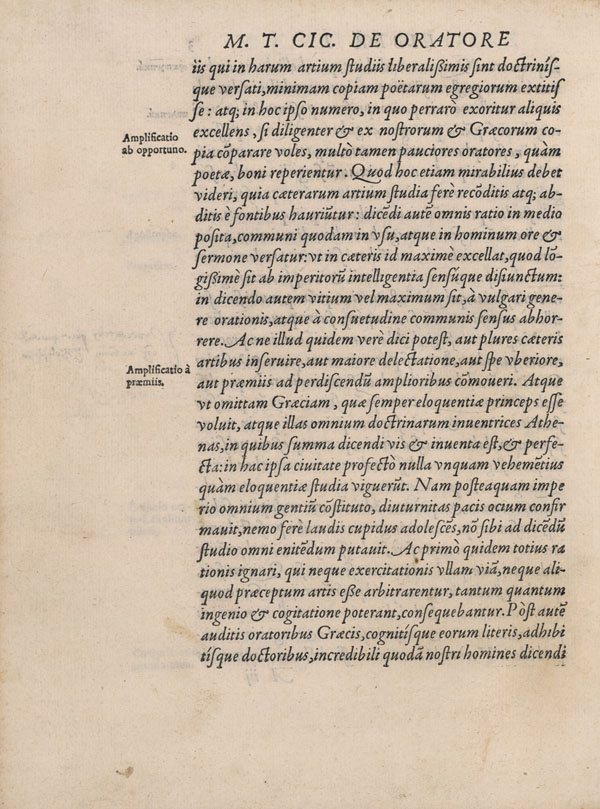 M. T. CIC. DE ORATORE
iis qui in harum artium studiis liberalißimis sint doctriníſ-
que verſati, minimam copiam poëtarum egregiorum extitiſ
ſe: atq; in hoc ipſo numero, in quo perrarò exoritur aliquis
Amplificatio
ab opportuno.
excellens, ſi diligenter & ex noſtrorum & Græcorum co-
pia cõparare voles, multò tamen pauciores oratores, quàm
poetæ, boni reperientur. Quod hoc etiam mirabilius debet
videri, quia cæterarum artium ſtudia ferè recõditis atq; ab-
ditis è fontibus hauriũtur: dicẽdi autẽ omnis ratio in medio
poſita, communi quodam in vſu, atque in hominum ore &
ſermone verſatur: vt in cæteris id maximè excellat, quod lõ-
gißimè ſit ab imperitorũ intelligentia ſenſúque diſiunctum:
in dicendo autem vitium vel maximum ſit, à vulgari gene-
re orationis, atque à conſuetudine communis ſenſus abhor-
rere. Ac ne illud quidem verè dici poteſt, aut plures cæteris
Amplificatio à
præmiis.
artibus inſeruire, aut maiore delectatione, aut ſpe vberiore,
aut præmiis ad perdiſcendũ amplioribus cõmoueri. Atque
vt omittam Græciam, quæ ſemper eloquentiæ princeps eſſe
voluit, atque illas omnium doctrinarum inuentrices Athe-
nas, in quibus ſumma dicendi vis & inuenta eſt, & perfe-
cta: in hac ipſa ciuitate profectò nulla vnquam vehemẽtius
quàm eloquentiæ ſtudia viguerũt. Nam poſteaquam impe
rio omnium gentiũ cõſtituto, diuturnitas pacis otium confir
mauit, nemo ferè laudis cupidus adoleſcẽs, nõ ſibi ad dicẽdũ
ſtudio omni enitẽdum putauit. Ac primò quidem totius ra
tionis ignari, qui neque exercitationis vllam viã, neque ali-
quod præceptum artis eße arbitrarentur, tantum quantum
ingenio & cogitatione poterant, conſequebantur. Pòſt autẽ
auditis oratoribus Græcis, cognitíſque eorum literis, adhibi
tíſque doctoribus, incredibili quodã noſtri homines dicendi